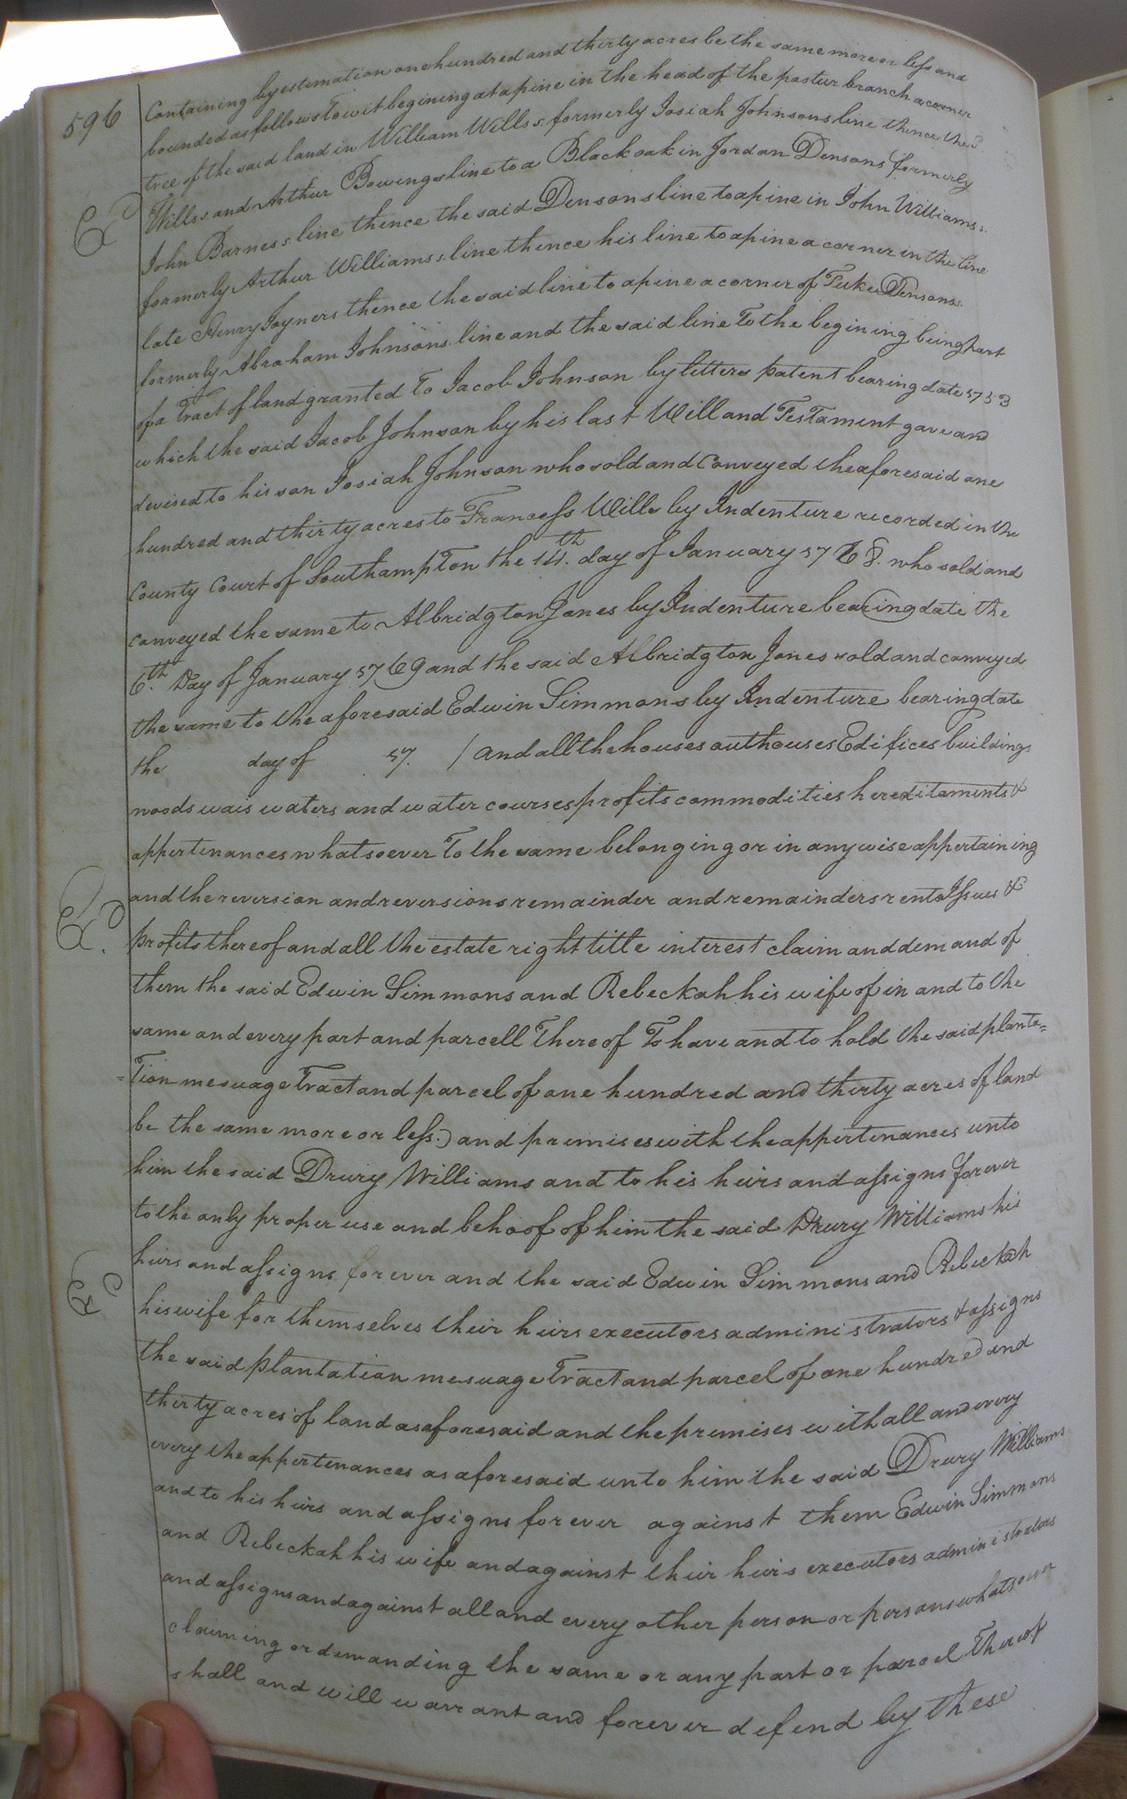 596
Containing by estemation one hundred and thirty acres be the same more or less and
bounded as follows Towit begining at a pine in the head of the pastur branch a corner
tree of the said land in William Wills's formerly Josiah Johnsons line thence the sd
Wills's and Arthur Bowings line to a Black oak in Jordan Densons formerly
John Barness's line thence the said Densons line to a pine in John Williams's
formerly Arthur Williams's line thence his line to a pine a corner in the line
late Henry Joyners thence the said line to a pine a corner of Tuke Densons
formerly Abraham Johnsons line and the said line To the begining being part
of a Tract of land granted To Jacob Johnson by letters patent bearing date 1753
which the said Jacob Johnson by his last Will and Testament gave and
devised to his son Josiah Johnson who sold and Conveyed the aforesaid one
hundred and thirty acres to Francess Wills by Indenture recorded in the
County Court of Southampton the 14th. day of January 1768. who sold and
conveyed the same to Albridgton Jones by Indenture bearing date the
6th. Day of January 1769 and the said Albridgton Jones sold and conveyed
the same to the aforesaid Edwin Simmons by Indenture bearing date
the day of 17. / and all the houses outhouses Edifices buildings
woods wais waters and water courses profits commodities hereditaments &
appertenances whatsoever To the same belonging or in anywise appertaining
and the reversion and reversions remainder and remainders rents Issues &
profits thereof and all the estate right title interest claim and demand of
them the said Edwin Simmons and Rebeckah his wife of in and to the
same and every part and parcell Thereof To have and to hold the said planta=
=Tion mesuage Tract and parcel of one hundred and thirty acres of land
be the same more or less.) and premises with the appertenances unto
him the said Drury Williams and to his heirs and assigns forever
to the only proper use and behoof of him the said Drury Williams his
heirs and assigns forever and the said Edwin Simmons and Rebeckah
his wife for themselves their heirs executors administrators & assigns
the said plantation mesuage Tract and parcel of one hundred and
thirty acres of land as aforesaid and the premises with all and every
every the appertenances as aforesaid unto him the said Drury Williams
and to his heirs and assigns forever against them Edwin Simmons
and Rebeckah his wife and against their heirs executors administrators
and assigns and against all and every other person or persons whatsoever
claiming or demanding the same or any part or parcel Thereof
shall and will warrant and forever defend by these